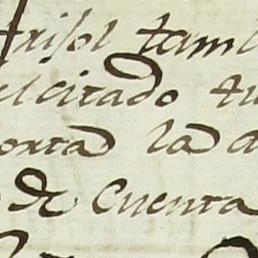 trisol tamb
el citado tu
onta la d
de Cuenta